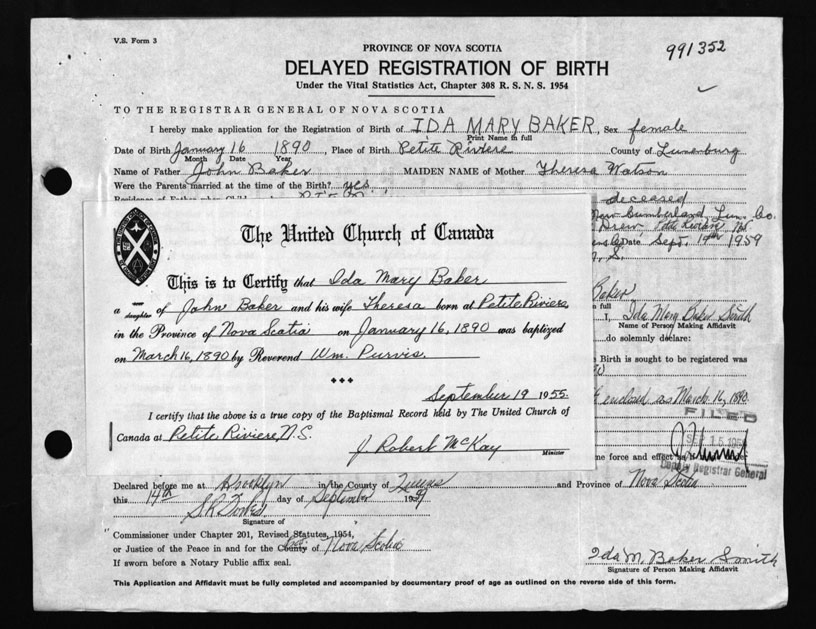 V.S. Form 3
991352
PROVINCE OF NOVA SCOTIA
DELAYED REGISTRATION OF BIRTH
Under the Vital Statistics Act, Chapter 308 R. S. N. S. 1954
TO THE REGISTRAR GENERAL OF NOVA SCOTIA
I hereby make application for the Registration of Birth of IDA MARY BAKER, Sex female
Print Name in full
Date of Birth January 16 1890, Place of Birth Petite Riviere County of Lunenburg
Month Date Year
Name of Father John Baker MAIDEN NAME of Mother Theresa Watson
Were the Parents married at the time of the Birth? yes
deceased
New Cumberland, Lun. Co.
Date Sept. 19th 1959
The United Church of Canada
This is to Certify that Ida Mary Baker
a daughter of John Baker and his wife Theresa born at Petite Riviere
in the Province of Nova Scotia on January 16, 1890 was baptized
on March 16, 1890 by Reverend Wm. Purvis.
September 19 1955.
I certify that the above is a true copy of the Baptismal Record held by The United Church of
Canada at Petite Riviere, N.S.
J. Robert McKay
Minister
Baker
in full
I, Ida Mary Baker Smith
Name of Person Making Affidavit
do solemnly declare:
Birth is sought to be registered was
enclosed as March 16, 1890.
FILED
me force and effect as if
Deputy Registrar General
Declared before me at Brooklyn in the County of Queens and Province of Nova Scotia
this 14th day of September 1959
Signature of
Commissioner under Chapter 201, Revised Statutes, 1954,
or Justice of the Peace in and for the County of Nova Scotia
If sworn before a Notary Public affix seal.
Ida M. Baker Smith
Signature of Person Making Affidavit
This Application and Affidavit must be fully completed and accompanied by documentary proof of age as outlined on the reverse side of this form.